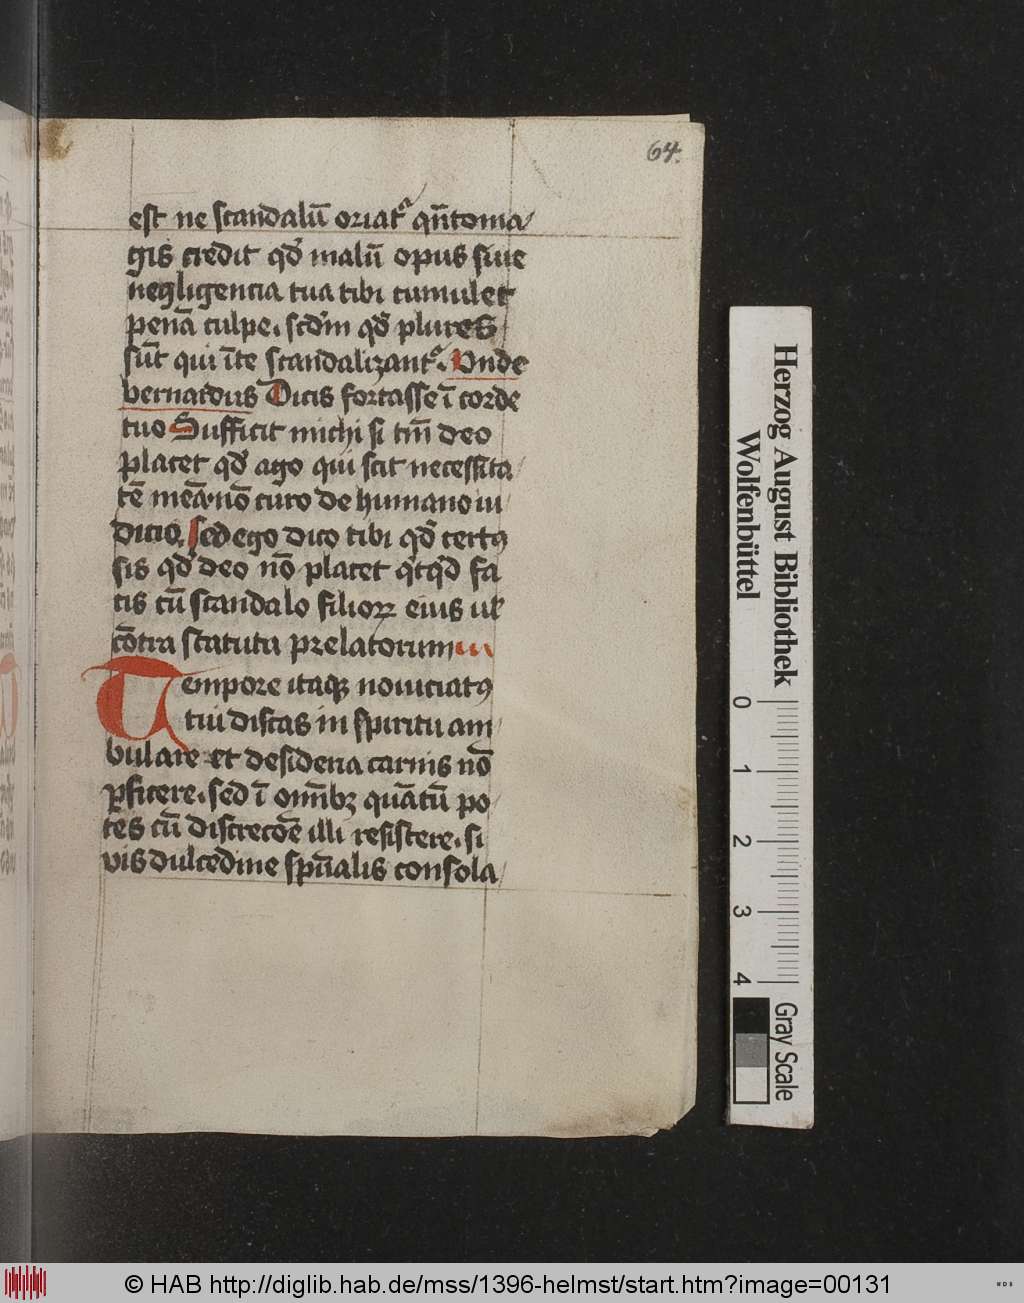 64.
est ne scandalū oriat᷑ qn̄to ma
gis credit qd̛ malū opus siue
neglige͏ncia tua tibi cumulet
penā culpe. scd̛m qd̛ plures
sūt qui ī te scandalizant᷑. Vnde
bernardus Dicis fortasse ī corde
tuo Sufficit michi si tm̄ deo
placet qd̛ ago qui scit necessita
tē meā. nō curo de humano iu
dicio. sed ego dico tibi qd̛ certꝰ
sis qd̛ deo nō placet qͥcqͥd fa
cis cū scandalo filioꝝ eius ul̛
cōtra statuta prelatorum
Tempore itaqꝫ nouiciatꝰ
tui discas in spiritu am
bulare et desideria carnis nō
ꝑficere. sed ī om̄ibꝫ quātū po
tes cū discrecōe illi resistere. si
vis dulcedine sp̄ualis consola
Herzog August Bibliothek
Wolfenbüttel
0 1 2 3 4
Gray Scale
© HAB http://diglib.hab.de/mss/1396-helmst/start.htm?image=00131